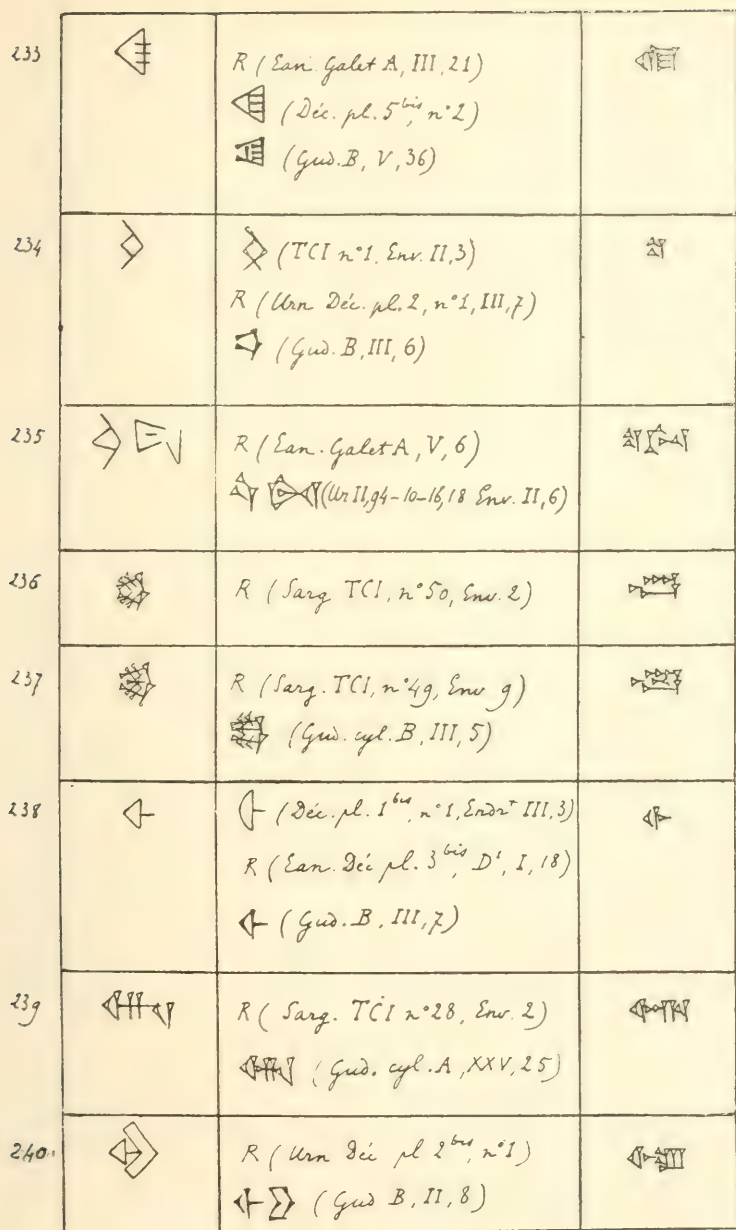 233 R (Ean. Galet A, III, 21)
(Déc. pl. 5 bis, n° 2)
(Gud. B, V, 36)
234 (TCI n° 1, Env. II, 3)
R (Urn Déc. pl. 2, n° 1, III, 7)
(Gud. B, III, 6)
235 R (Ean. Galet A, V, 6)
(Ur II, 94-10-16, 18 Env. II, 6)
236 R (Sarg TCI, n° 50, Env. 2)
237 R (Sarg. TCI, n° 49, Env 9)
(Gud. cyl. B, III, 5)
238 (Déc. pl. 1 bis, n° 1, Endrt III, 3)
R (Ean. Déc pl. 3 bis, D1, I, 18)
(Gud. B, III, 7)
239 R (Sarg. TCI n° 28, Env. 2)
(Gud. cyl. A, XXV, 25)
240. R (Urn Déc pl 2 bis, n° 1)
(Gud B, II, 8)